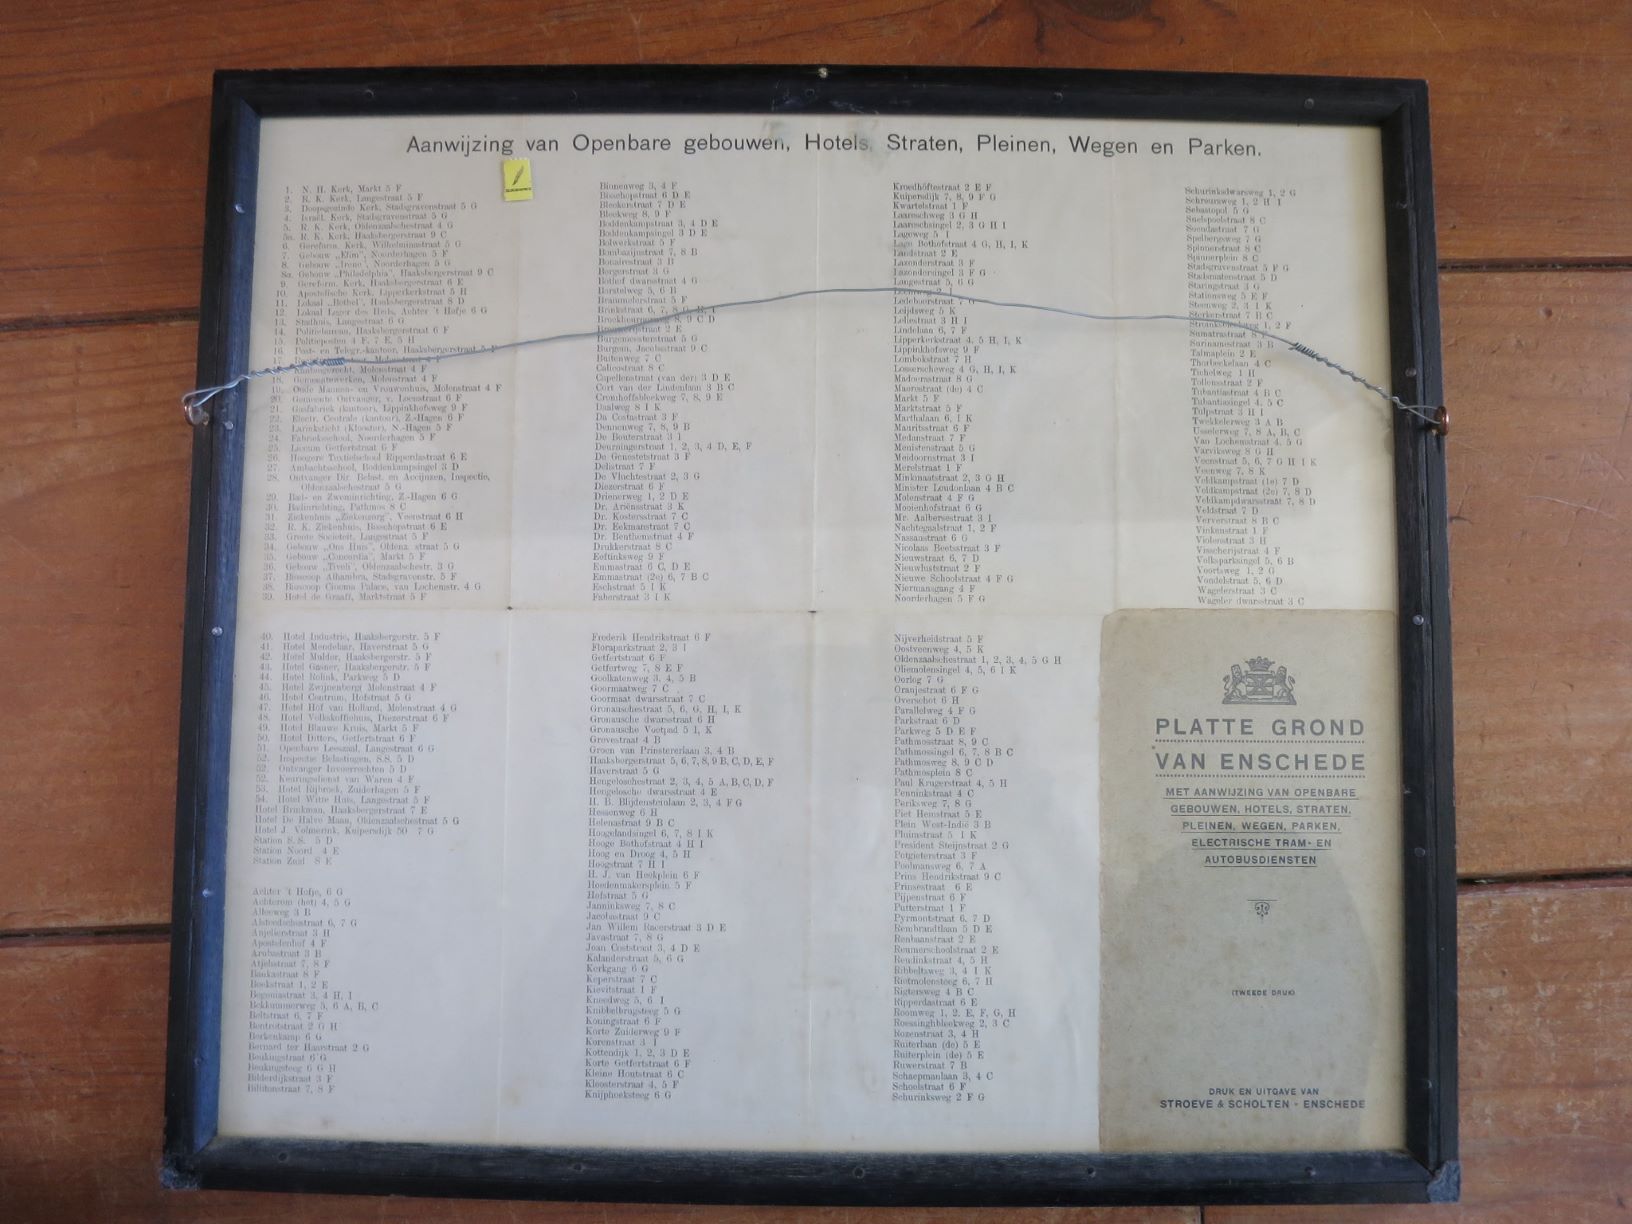 Aanwijzing van Openbare gebouwen, Hotels, Straten, Pleinen, Wegen en Parken.
1. N. H. Kerk, Markt 5 F
2. R. K. Kerk, Langestraat 5 F
3. Doopsgezinde Kerk, Stadsgravenstraat 5 G
4. Israël. Kerk, Stadsgravenstraat 5 G
5. R. K. Kerk, Oldenzaalschestraat 4 G
5a. R. K. Kerk, Haaksbergerstraat 9 C
6. Gereform. Kerk, Wilhelminastraat 5 G
7. Gebouw „Efim", Noorderhagen 5 F
8. Gebouw „Irene", Noorderhagen 5 G
8a. Gebouw „Philadelphia", Haaksbergerstraat 9 C
9. Gereform. Kerk, Haaksbergerstraat 6 E
10. Apostolische Kerk, Lipperkerkstraat 5 H
11. Lokaal „Bethel", Haaksbergerstraat 8 D
12. Lokaal Leger des Heils, Achter 't Hofje 6 G
13. Stadhuis, Langestraat 6 G
14. Politiebureau, Haaksbergerstraat 6 F
15. Politieposten 4 F, 7 E, 5 H
16. Post- en Telegr.-kantoor, Haaksbergerstraat 5 F
17. Molenstraat 4 F
Kantongerecht, Molenstraat 4 F
18. Gemeentewerken, Molenstraat 4 F
19. Oude Mannen- en Vrouwenhuis, Molenstraat 4 F
20. Gemeente Ontvanger, v. Loenstraat 6 F
21. Gasfabriek (kantoor), Lippinkhofsweg 9 F
22. Electr. Centrale (kantoor), Z.-Hagen 6 F
23. Larinksticht (Klooster), N.-Hagen 5 F
24. Fabrieksschool, Noorderhagen 5 F
25. Liceum Getfertstraat 6 F
26. Hoogere Textielschool Ripperdastraat 6 E
27. Ambachtsschool, Boddenkampsingel 3 D
28. Ontvanger Dir. Belast. en Accijnzen, Inspectie,
Oldenzaalschestraat 5 G
29. Bad- en Zweminrichting, Z.-Hagen 6 G
30. Badinrichting, Pathmos 8 C
31. Ziekenhuis „Ziekenzorg", Veenstraat 6 H
32. R. K. Ziekenhuis, Bisschopstraat 6 E
33. Groote Societeit, Langestraat 5 F
34. Gebouw „Ons Huis", Oldenz. straat 5 G
35. Gebouw „Concordia", Markt 5 F
36. Gebouw „Tivoli", Oldenzaalschestr. 3 G
37. Bioscoop Alhambra, Stadsgravenstr. 5 F
38. Bioscoop Cinema Palace, van Lochemstr. 4 G
39. Hotel de Graaff, Marktstraat 5 F
40. Hotel Industrie, Haaksbergerstr. 5 F
41. Hotel Mendelaar, Haverstraat 5 G
42. Hotel Mulder, Haaksbergerstr. 5 F
43. Hotel Gasner, Haaksbergerstr. 5 F
44. Hotel Rolink, Parkweg 5 D
45. Hotel Zwijnenberg Molenstraat 4 F
46. Hotel Centrum, Hofstraat 5 G
47. Hotel Hof van Holland, Molenstraat 4 G
48. Hotel Volkskoffiehuis, Diezerstraat 6 F
49. Hotel Blauwe Kruis, Markt 5 F
50. Hotel Ditters, Getfertstraat 6 F
51. Openbare Leeszaal, Langestraat 6 G
52. Inspectie Belastingen, S.S. 5 D
52. Ontvanger Invoerrechten 5 D
52. Keuringsdienst van Waren 4 F
53. Hotel Rijbroek, Zuiderhagen 5 F
54. Hotel Witte Huis, Langestraat 5 F
Hotel Brinkman, Haaksbergerstraat 7 E
Hotel De Halve Maan, Oldenzaalschestraat 5 G
Hotel J. Volmerink, Kuipersdijk 50 7 G
Station S.S. 5 D
Station Noord 4 E
Station Zuid 8 E
Achter 't Hofje, 6 G
Achterom (het) 4, 5 G
Alleeweg 3 B
Alsteedschestraat 6, 7 G
Anjelierstraat 3 H
Apostelenhof 4 F
Arubastraat 3 B
Atjehstraat 7, 8 F
Bankastraat 8 F
Beekstraat 1, 2 E
Begoniastraat 3, 4 H, I
Bekkumerweg 5, 6 A, B, C
Beltstraat 6, 7 F
Bentrotstraat 2 G H
Berkenkamp 6 G
Bernard ter Haarstraat 2 G
Beukingstraat 6 G
Beukingsteeg 6 G H
Bilderdijkstraat 3 F
Billitonstraat 7, 8 F
Binnenweg 3, 4 F
Bisschopstraat 6 D E
Bleekenstraat 7 D E
Bleekweg 8, 9 F
Boddenkampstraat 3, 4 D E
Boddenkampsingel 3 D E
Bolwerkstraat 5 F
Bombazijnstraat 7, 8 B
Bonairestraat 3 B
Borgerstraat 3 G
Bothof dwarsstraat 4 G
Borstelweg 5, 6 B
Braummelerstraat 5 F
Brinkstraat 6, 7, 8 G H, I
Broekheurnerweg 8, 9 C D
Brouwerijstraat 2 E
Burgemeesterstraat 5 G
Burgem. Jacobsstraat 9 C
Buitenweg 7 C
Calicostraat 8 C
Capellenstraat (van der) 3 D E
Cort van der Lindenlaan 3 B C
Cromhoffsbleekweg 7, 8, 9 E
Daalweg 8 I K
Da Costastraat 3 F
Dennenweg 7, 8, 9 B
De Bouterstraat 3 I
Deurningerstraat 1, 2, 3, 4 D, E, F
De Genestetstraat 3 F
Delistraat 7 F
De Vluchtestraat 2, 3 G
Diezerstraat 6 F
Drienerweg 1, 2 D E
Dr. Ariënsstraat 3 K
Dr. Kostersstraat 7 C
Dr. Eekmanstraat 7 C
Dr. Benthemstraat 4 F
Drukkerstraat 8 C
Eeftinksweg 9 F
Emmastraat 6 C, D E
Emmastraat (2e) 6, 7 B C
Eschstraat 5 I K
Faberstraat 3 I K
Frederik Hendrikstraat 6 F
Floraparkstraat 2, 3 I
Getfertstraat 6 F
Getfertweg 7, 8 E F
Goolkatenweg 3, 4, 5 B
Goormaatweg 7 C
Goormaat dwarsstraat 7 C
Gronauschestraat 5, 6, G, H, I, K
Gronausche dwarsstraat 6 H
Gronausche Voetpad 5 I, K
Grevestraat 4 B
Groen van Prinstererlaan 3, 4 B
Haaksbergerstraat 5, 6, 7, 8, 9 B, C, D, E, F
Haverstraat 5 G
Hengeloschestraat 2, 3, 4, 5 A, B, C, D, F
Hengelosche dwarsstraat 4 E
H. B. Blijdensteinlaan 2, 3, 4 F G
Hessenweg 6 H
Helenastraat 9 B C
Hoogelandsingel 6, 7, 8 I K
Hooge Bothofstraat 4 H I
Hoog en Droog 4, 5 H
Hoogstraat 7 H I
H. J. van Heekplein 6 F
Hoedenmakersplein 5 F
Hofstraat 5 G
Janninksweg 7, 8 C
Jacobastraat 9 C
Jan Willem Racerstraat 3 D E
Javastraat 7, 8 G
Joan Coststraat 3, 4 D E
Kalanderstraat 5, 6 G
Kerkgang 6 G
Keperstraat 7 C
Kievitstraat 1 F
Kneedweg 5, 6 I
Knibbelbrugsteeg 5 G
Koningstraat 6 F
Korte Zuiderweg 9 F
Korenstraat 3 I
Kottendijk 1, 2, 3 D E
Korte Getfertstraat 6 F
Kleine Houtstraat 6 C
Kloosterstraat 4, 5 F
Knijpheeksteeg 6 G
Kroedhöftestraat 2 E F
Kuipersdijk 7, 8, 9 F G
Kwartelstraat 1 F
Laareschweg 3 G H
Laareschsingel 2, 3 G H I
Lageweg 5 I
Lage Bothofstraat 4 G, H, I, K
Landstraat 2 E
Lazonderstraat 3 F
Lazondersingel 3 F G
Langestraat 5, 6 G
Leemweg 2 I
Ledeboerstraat 7 G
Leijdsweg 5 K
Leliestraat 3 H I
Lindelaan 6, 7 F
Lipperkerkstraat 4, 5 H, I, K
Lippinkhofsweg 9 F
Lombokstraat 7 H
Losserscheweg 4 G, H, I, K
Madoerastraat 8 G
Maarestraat (de) 4 C
Markt 5 F
Marktstraat 5 F
Marthalaan 6, I K
Mauritsstraat 6 F
Medanstraat 7 F
Menistenstraat 5 G
Meidoornstraat 3 I
Merelstraat 1 F
Minkmaatstraat 2, 3 G H
Minister Loudonlaan 4 B C
Molenstraat 4 F G
Mooienhofstraat 6 G
Mr. Aalbersestraat 3 I
Nachtegaalstraat 1, 2 F
Nassaustraat 6 G
Nicolaas Beetsstraat 3 F
Nieuwstraat 6, 7 D
Nieuwluststraat 2 F
Nieuwe Schoolstraat 4 F G
Niermansgang 4 F
Noorderhagen 5 F G
Nijverheidstraat 5 F
Oostveenweg 4, 5 K
Oldenzaalschestraat 1, 2, 3, 4, 5 G H
Oliemolensingel 4, 5, 6 I K
Oorlog 7 G
Oranjestraat 6 F G
Overschot 6 H
Parallelweg 4 F G
Parkstraat 6 D
Parkweg 5 D E F
Pathmosstraat 8, 9 C
Pathmossingel 6, 7, 8 B C
Pathmosweg 8, 9 C D
Pathmosplein 8 C
Paul Krugerstraat 4, 5 H
Penninkstraat 4 C
Periksweg 7, 8 G
Piet Heinstraat 5 E
Plein West-Indië 3 B
Pluimstraat 5 I K
President Steijnstraat 2 G
Potgieterstraat 3 F
Poolmansweg 6, 7 A
Prins Hendrikstraat 9 C
Prinsestraat 6 E
Pijpenstraat 6 F
Putterstraat 1 F
Pyrmontstraat 6, 7 D
Rembrandtlaan 5 D E
Renbaanstraat 2 E
Remmerschoolstraat 2 E
Reudinkstraat 4, 5 H
Ribbeltsweg 3, 4 I K
Rietmolensteeg 6, 7 H
Rigtersweg 4 B C
Ripperdastraat 6 E
Roomweg 1, 2. E, F, G, H
Roessinghbleekweg 2, 3 C
Rozenstraat 3, 4 H
Ruiterlaan (de) 5 E
Ruiterplein (de) 5 E
Ruwerstraat 7 B
Schaepmanlaan 3, 4 C
Schoolstraat 6 F
Schurinksweg 2 F G
Schurinkdwarsweg 1, 2 G
Schreursweg 1, 2 H I
Sebastopol 5 G
Snelspoelstraat 8 C
Soendastraat 7 G
Spelbergsweg 7 G
Spinnerstraat 8 C
Spinnerplein 8 C
Stadsgravenstraat 5 F G
Stadsmatenstraat 5 D
Staringstraat 3 G
Stationsweg 5 E F
Steenweg 2, 3 I K
Sterkerstraat 7 B C
Stroinksbleekweg 1, 2 F
Sumatrastraat
Surinamestraat 3 B
Talmaplein 2 E
Thorbeckelaan 4 C
Tichelweg 1 H
Tollensstraat 2 F
Tubantiastraat 4 B C
Tubantiasingel 4, 5 C
Tulpstraat 3 H I
Twekkelerweg 3 A B
Usselerweg 7, 8 A, B, C
Van Lochemstraat 4, 5 G
Varviksweg 8 G H
Veenstraat 5, 6, 7 G H I K
Veenweg 7, 8 K
Veldkampstraat (1e) 7 D
Veldkampstraat (2e) 7, 8 D
Veldkampdwarsstraat 7, 8 D
Veldstraat 7 D
Ververstraat 8 B C
Vinkenstraat 1 F
Violenstraat 3 H
Visscherijstraat 4 F
Volksparksingel 5, 6 B
Voortsweg 1, 2 G
Vondelstraat 5, 6 D
Wagelerstraat 3 C
Wageler dwarsstraat 3 C
PLATTE GROND
VAN ENSCHEDE
MET AANWIJZING VAN OPENBARE
GEBOUWEN, HOTELS, STRATEN,
PLEINEN, WEGEN, PARKEN,
ELECTRISCHE TRAM- EN
AUTOBUSDIENSTEN
(TWEEDE DRUK)
DRUK EN UITGAVE VAN
STROEVE & SCHOLTEN - ENSCHEDE